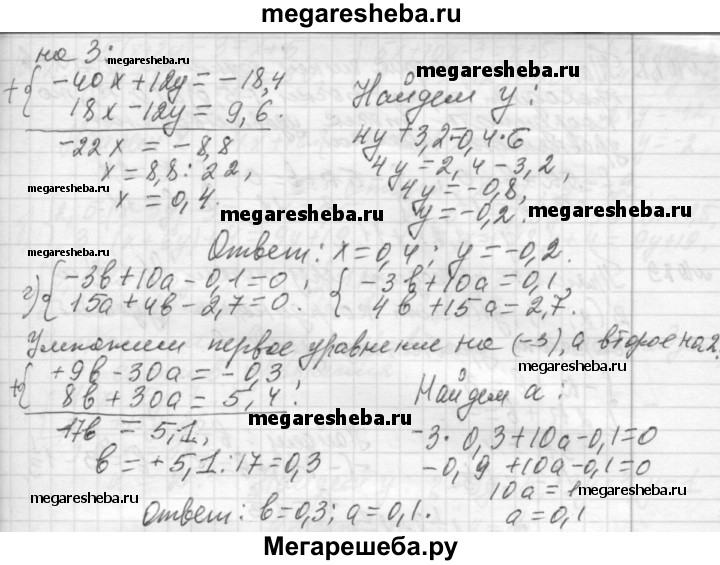 megaresheba.ru
на 3: megaresheba.ru
+{ -40x+12y = -18,4
18x-12y = 9,6.
-22x = -8,8
x = 8,8 : 22,
x = 0,4.
megaresheba.ru
Найдем y:
4y+3,2=0,4·6
4y = 2,4-3,2,
4y = -0,8,
y = -0,2.
megaresheba.ru
megaresheba.ru
Ответ: x=0,4; y=-0,2.
megaresheba.ru
г) { -3b+10a-0,1=0, { -3b+10a=0,1,
15a+4b-2,7=0. 4b+15a=2,7.
Умножим первое уравнение на (-3), а второе на 2.
+{ +9b-30a = -0,3
8b+30a = 5,4;
megaresheba.ru
17b = 5,1,
b = +5,1:17=0,3
Найдем a:
megaresheba.ru
-3·0,3+10a-0,1=0
-0,9+10a-0,1=0
10a = 1
a=0,1
megaresheba.ru
megaresheba.ru
Ответ: b=0,3; a=0,1.
Мегарешеба.ру